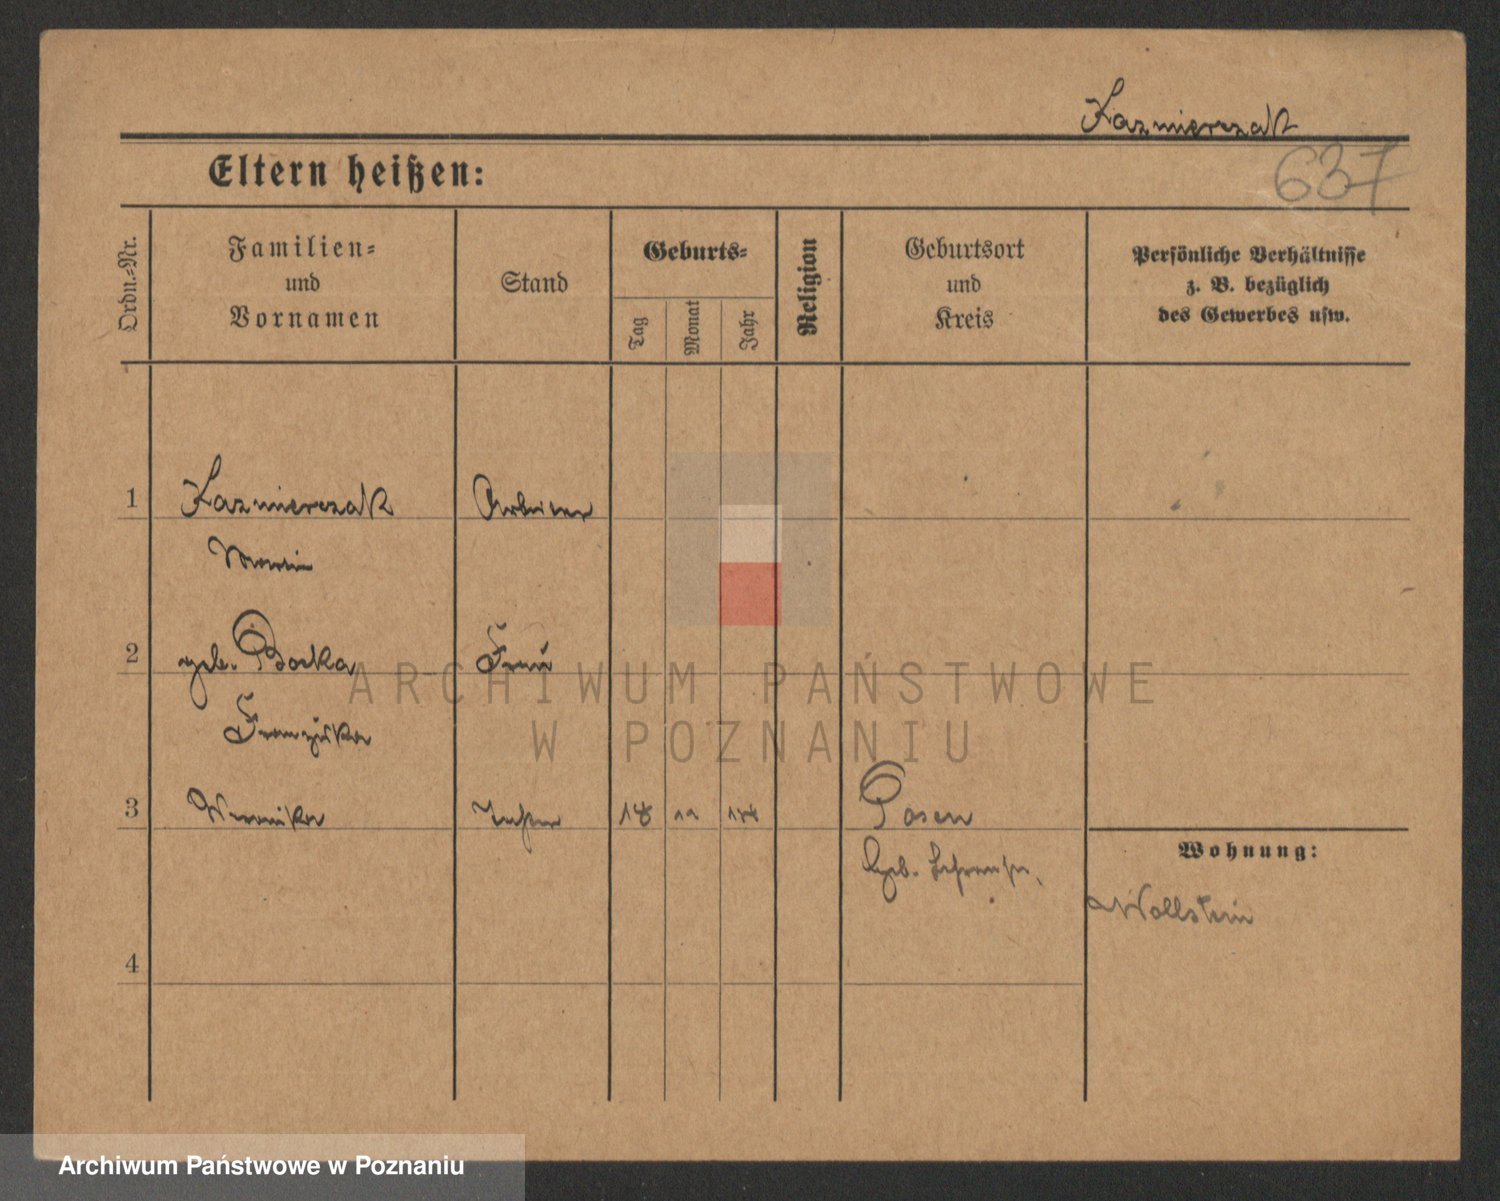 Kazmierczak
637
Eltern heißen:
Ordn.-Nr.
Familien-
und
Vornamen
Stand
Geburts-
Tag
Monat
Jahr
Religion
Geburtsort
und
Kreis
Persönliche Verhältnisse
z. B. bezüglich
des Gewerbes usw.
1
Kazmierczak
Arbeiter
Martin
2
geb. Bocka
Frau
Franziska
3
Weronika
Tochter
18
11
Posen
Wohnung:
geb.
Wollstein
4
ARCHIWUM PAŃSTWOWE
W POZNANIU
Archiwum Państwowe w Poznaniu